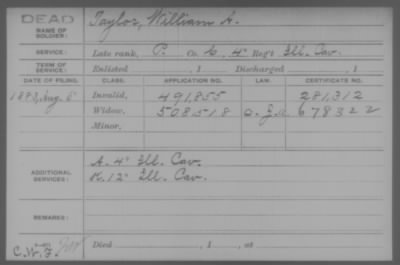 DEAD
NAME OF SOLDIER: Taylor, William A.
SERVICE: Late rank, P. Co. G, 4" Reg't Ill. Cav.
TERM OF SERVICE: Enlisted , 1 Discharged , 1
DATE OF FILING. CLASS. APPLICATION NO. LAW. CERTIFICATE NO.
Aug. 5 Invalid, 491,855 281,312
Widow, 508,518 678322
Minor,
ADDITIONAL SERVICES: A. 4" Ill. Cav.
K. 12" Ill. Cav.
REMARKS:
Died , 1 , at
C.W.F.